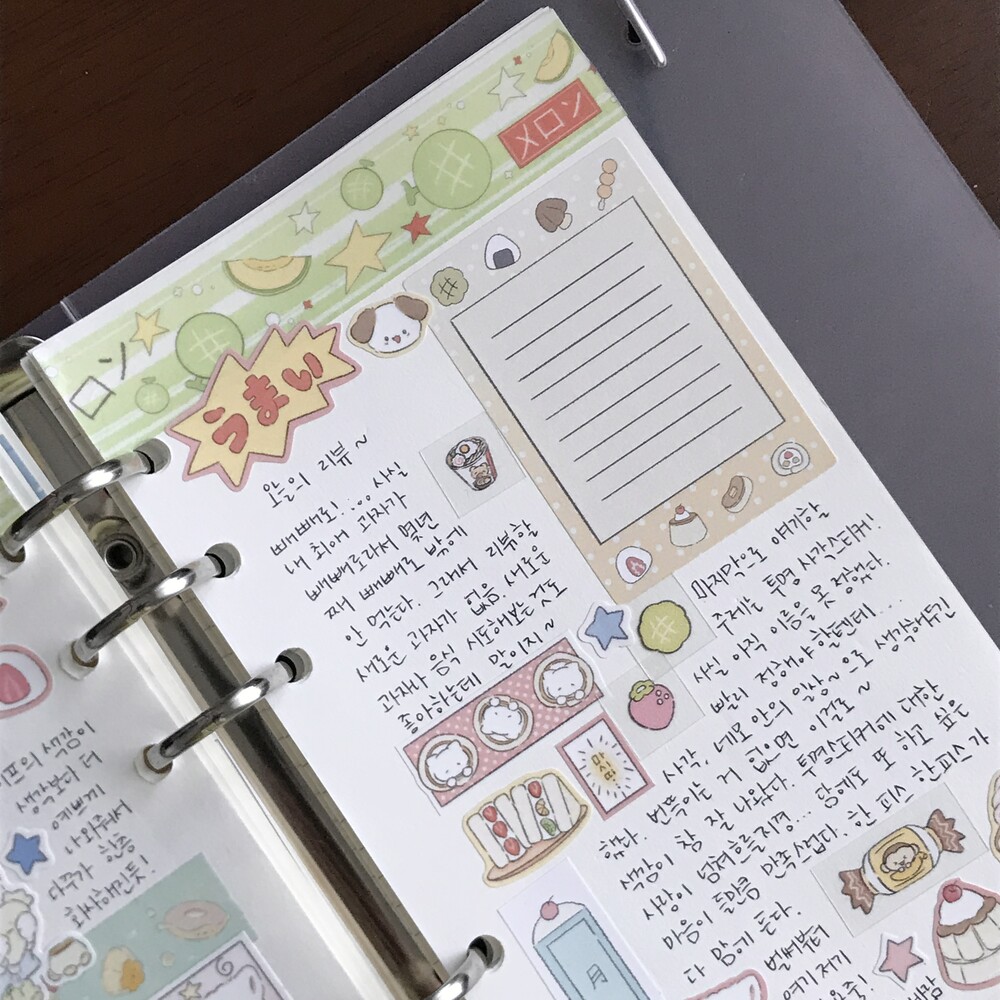 メロン
ロン
うまい
오늘의 리뷰~
빼빼로! ... 사실
내 최애 과자가
빼빼로라서 몇년
째 빼빼로 밖에
안 먹는다. 그래서 리뷰할
새로운 과자가 없음. 새로운
과자나 음식 시도해보는 것도
좋아하는데 말이지~
마싯따
마지막으로 얘기할
주제는 투명 사각스티커!
사실 아직 이름을 못 정했다.
빨리 정해야 할텐데...
사각, 네모 안의 일상~으로 생각해두긴
했다. 번뜩이는 거 없으면 이걸로~
색감이 참 잘 나왔다. 투명스티커에 대한
사랑이 넘쳐흐를지경... 담에도 또 하고 싶은
마음이 들만큼 만족스럽다. 한 피스 한피스가
다 맘에 든다.
벌써부터
여기저기
月
색감이
생각보다 더
예쁘게
나와줘서
다꾸가 한층
화사해진듯!